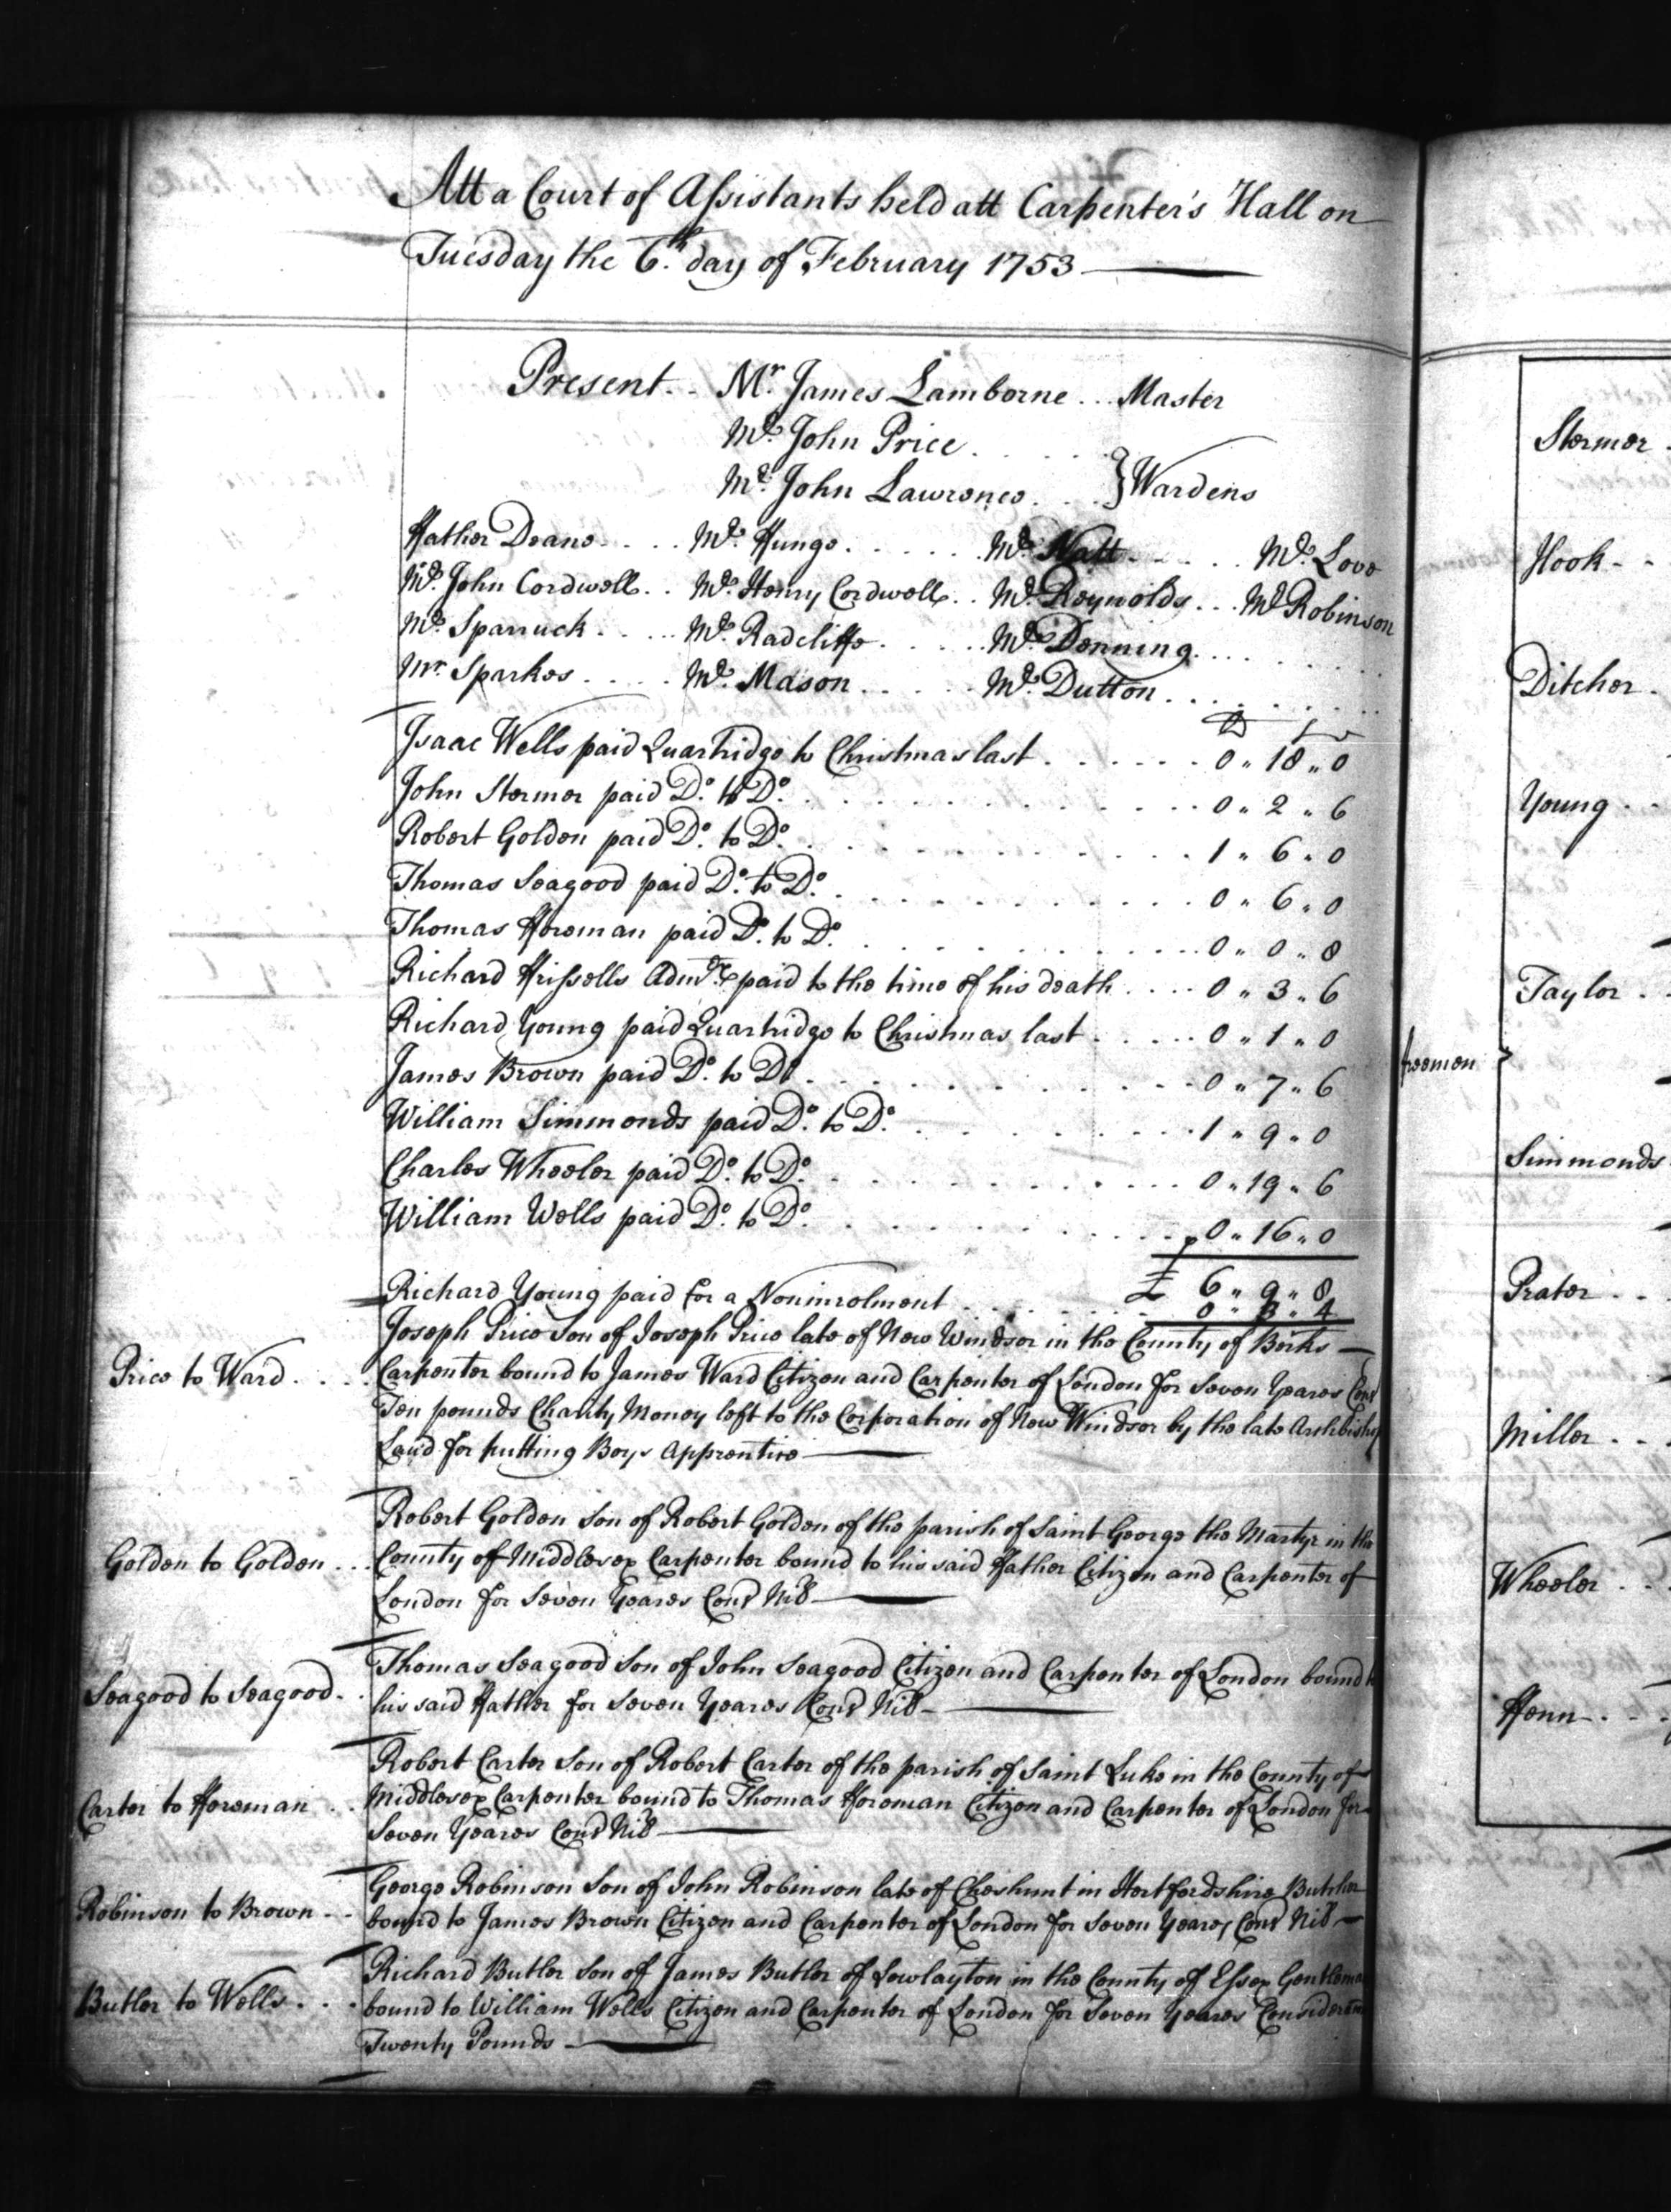 Att a Court of Assistants held att Carpenter's Hall on
Tuesday the 6th day of February 1753
Present Mr. James Lamborne Master
Mr. John Price
Mr. John Lawrence } Wardens
Father Deane Mr. Mr. Natt Mr. Love
Mr. John Cordwell Mr. Henry Cordwell Mr. Reynolds Mr. Robinson
Mr. Sparruck Mr. Radcliffe Mr. Denning
Mr. Sparkes Mr. Mason Mr. Dutton
Isaac Wells paid Quartridge to Christmas last 0 " 18 " 0
John Stermer paid Do. to Do. 0 " 2 " 6
Robert Golden paid Do. to Do. 1 " 6 " 0
Thomas Seagood paid Do. to Do. 0 " 6 " 0
Thomas Foreman paid Do. to Do. 0 " 0 " 8
Richard paid to the time of his death 0 " 3 " 6
Richard Young paid Quartridge to Christmas last 0 " 1 " 0
James Brown paid Do. to Do. 0 " 7 " 6
William Simmonds paid Do. to Do. 1 " 9 " 0
Charles Wheeler paid Do. to Do. 0 " 19 " 6
William Wells paid Do. to Do. 0 " 16 " 0
£ 6 " 9 " 8
Richard Young paid for a Noninrolment 0 " 3 " 4
Joseph Price Son of Joseph Price late of New Windsor in the County of Berks
Price to Ward Carpenter bound to James Ward Citizen and Carpenter of London for Seven Yeares Cons
Ten pounds Charity Money left to the Corporation of New Windsor by the late Archbishop
Laud for putting Boys Apprentice
Robert Golden Son of Robert Golden of the parish of Saint George the Martyr in the
Golden to Golden County of Middlesex Carpenter bound to his said Father Citizen and Carpenter of
London for Seven Yeares Cons Nil
Thomas Seagood Son of John Seagood Citizen and Carpenter of London bound to
Seagood to Seagood his said Father for Seven Yeares Cons Nil
Robert Carter Son of Robert Carter of the parish of Saint Luke in the County of
Carter to Foreman Middlesex Carpenter bound to Thomas Foreman Citizen and Carpenter of London for
Seven Yeares Cons Nil
George Robinson Son of John Robinson late of Cheshunt in Hertfordshire Butcher
Robinson to Brown bound to James Brown Citizen and Carpenter of London for Seven Yeares Cons Nil
Richard Butler Son of James Butler of Lowlayton in the County of Essex Gentleman
Butler to Wells bound to William Wells Citizen and Carpenter of London for Seven Yeares Consideracon
Twenty Pounds
Stermer
Hook
Ditcher
Young
Taylor
freemen }
Simmonds
Prater
Miller
Wheeler
Fenn